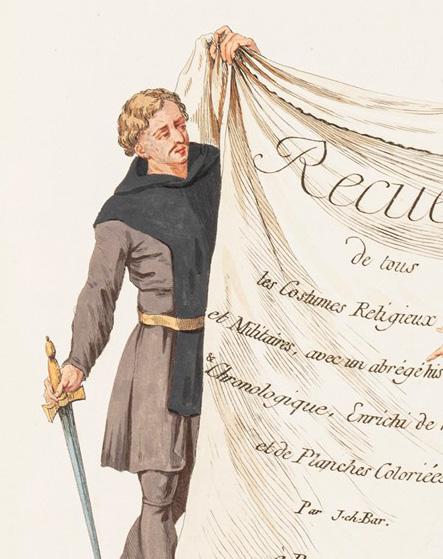 Recue
de tous
les Costumes Religieux
et Militaires, avec un abrégé his
& Chronologique, Enrichi de
et de Planches Coloriées
Par J.ch.Bar.